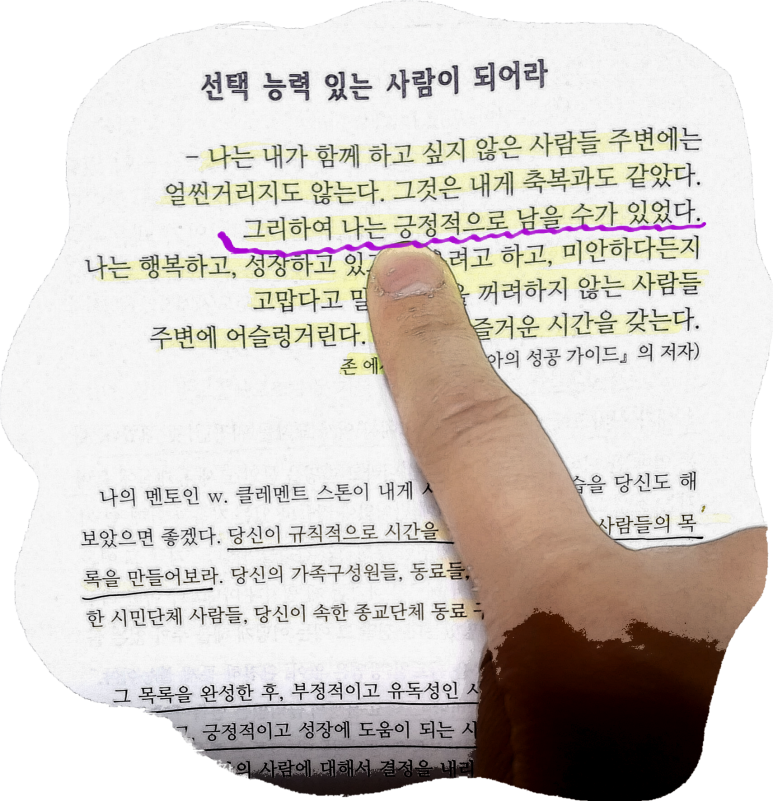 선택 능력 있는 사람이 되어라
- 나는 내가 함께 하고 싶지 않은 사람들 주변에는
얼씬거리지도 않는다. 그것은 내게 축복과도 같았다.
그리하여 나는 긍정적으로 남을 수가 있었다.
나는 행복하고, 성장하고 려고 하고, 미안하다든지
고맙다고 꺼려하지 않는 사람들
주변에 어슬렁거린다. 즐거운 시간을 갖는다.
존 성공 가이드』의 저자)
나의 멘토인 w. 클레멘트 스톤이 내게 당신도 해
보았으면 좋겠다. 당신이 규칙적으로 시간을 사람들의 목
록을 만들어보라. 당신의 가족구성원들, 동료들,
한 시민단체 사람들, 당신이 속한 종교단체 동료
그 목록을 완성한 후, 부정적이고 유독성인
긍정적이고 성장에 도움이 되는
사람에 대해서 결정을 내리